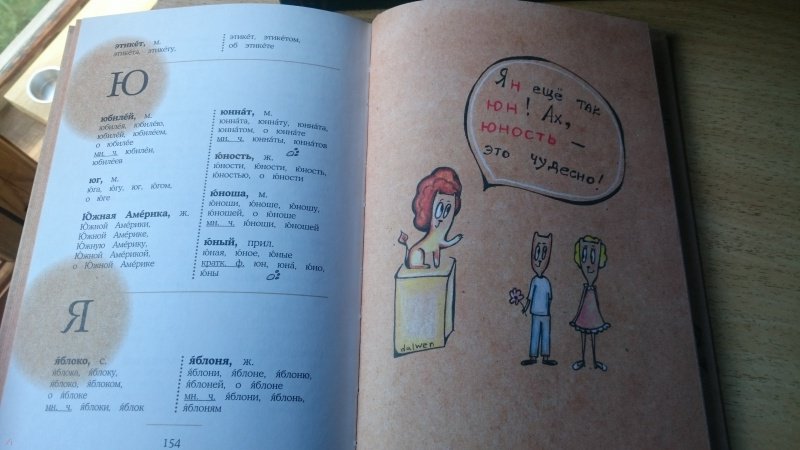 этике́т, м.
этике́та, этике́ту,
этике́т, этике́том,
об этике́те
Ю
юбиле́й, м.
юбиле́я, юбиле́ю,
юбиле́й, юбиле́ем,
о юбиле́е
мн. ч. юбиле́и,
юбиле́ев
юг, м.
ю́га, ю́гу, юг, ю́гом,
о ю́ге
Ю́жная Аме́рика, ж.
Ю́жной Аме́рики,
Ю́жной Аме́рике,
Ю́жную Аме́рику,
Ю́жной Аме́рикой,
о Ю́жной Аме́рике
юнна́т, м.
юнна́та, юнна́ту, юнна́та,
юнна́том, о юнна́те
мн. ч. юнна́ты, юнна́тов
ю́ность, ж.
ю́ности, ю́ности, ю́ность,
ю́ностью, о ю́ности
ю́ноша, м.
ю́ноши, ю́ноше, ю́ношу,
ю́ношей, о ю́ноше
мн. ч. ю́ноши, ю́ношей
ю́ный, прил.
ю́ная, ю́ное, ю́ные
кратк. ф. юн, юна́, ю́но,
ю́ны
Я
я́блоко, с.
я́блока, я́блоку,
я́блоко, я́блоком,
о я́блоке
мн. ч. я́блоки, я́блок
я́блоня, ж.
я́блони, я́блоне, я́блоню,
я́блоней, о я́блоне
мн. ч. я́блони, я́блонь,
я́блоням
154
Ян ещё так
юн! Ах,
юность –
это чудесно!
dalwen